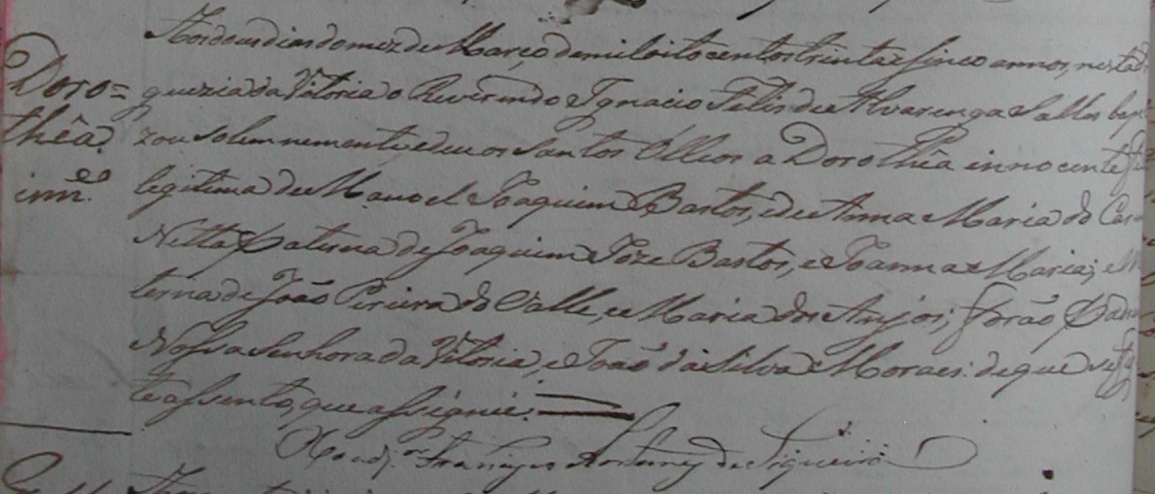 Aos dous dias do mez de Março de mil oito centos trinta e sinco annos, nesta
Doro=
guezia da Vitoria o Reverendo Ignacio Felis de Alvarenga Salles bap
thêa.
zou solemnemente, e deu os Santos Olleos a Dorothêa innocente fi
inn.
legitima de Manoel Joaquim Bastos, e de Anna Maria do Car
Netta Paterna de Joaquim Joze Bastos, e Joanna Maria; e M
terna de João Pereira do Valle, e Maria dos Anjos; forão Padri
Nossa Senhora da Vitoria, e João da Silva Moraes: de que
te assento, que assignei.
Francisco Antunes de Siqueira